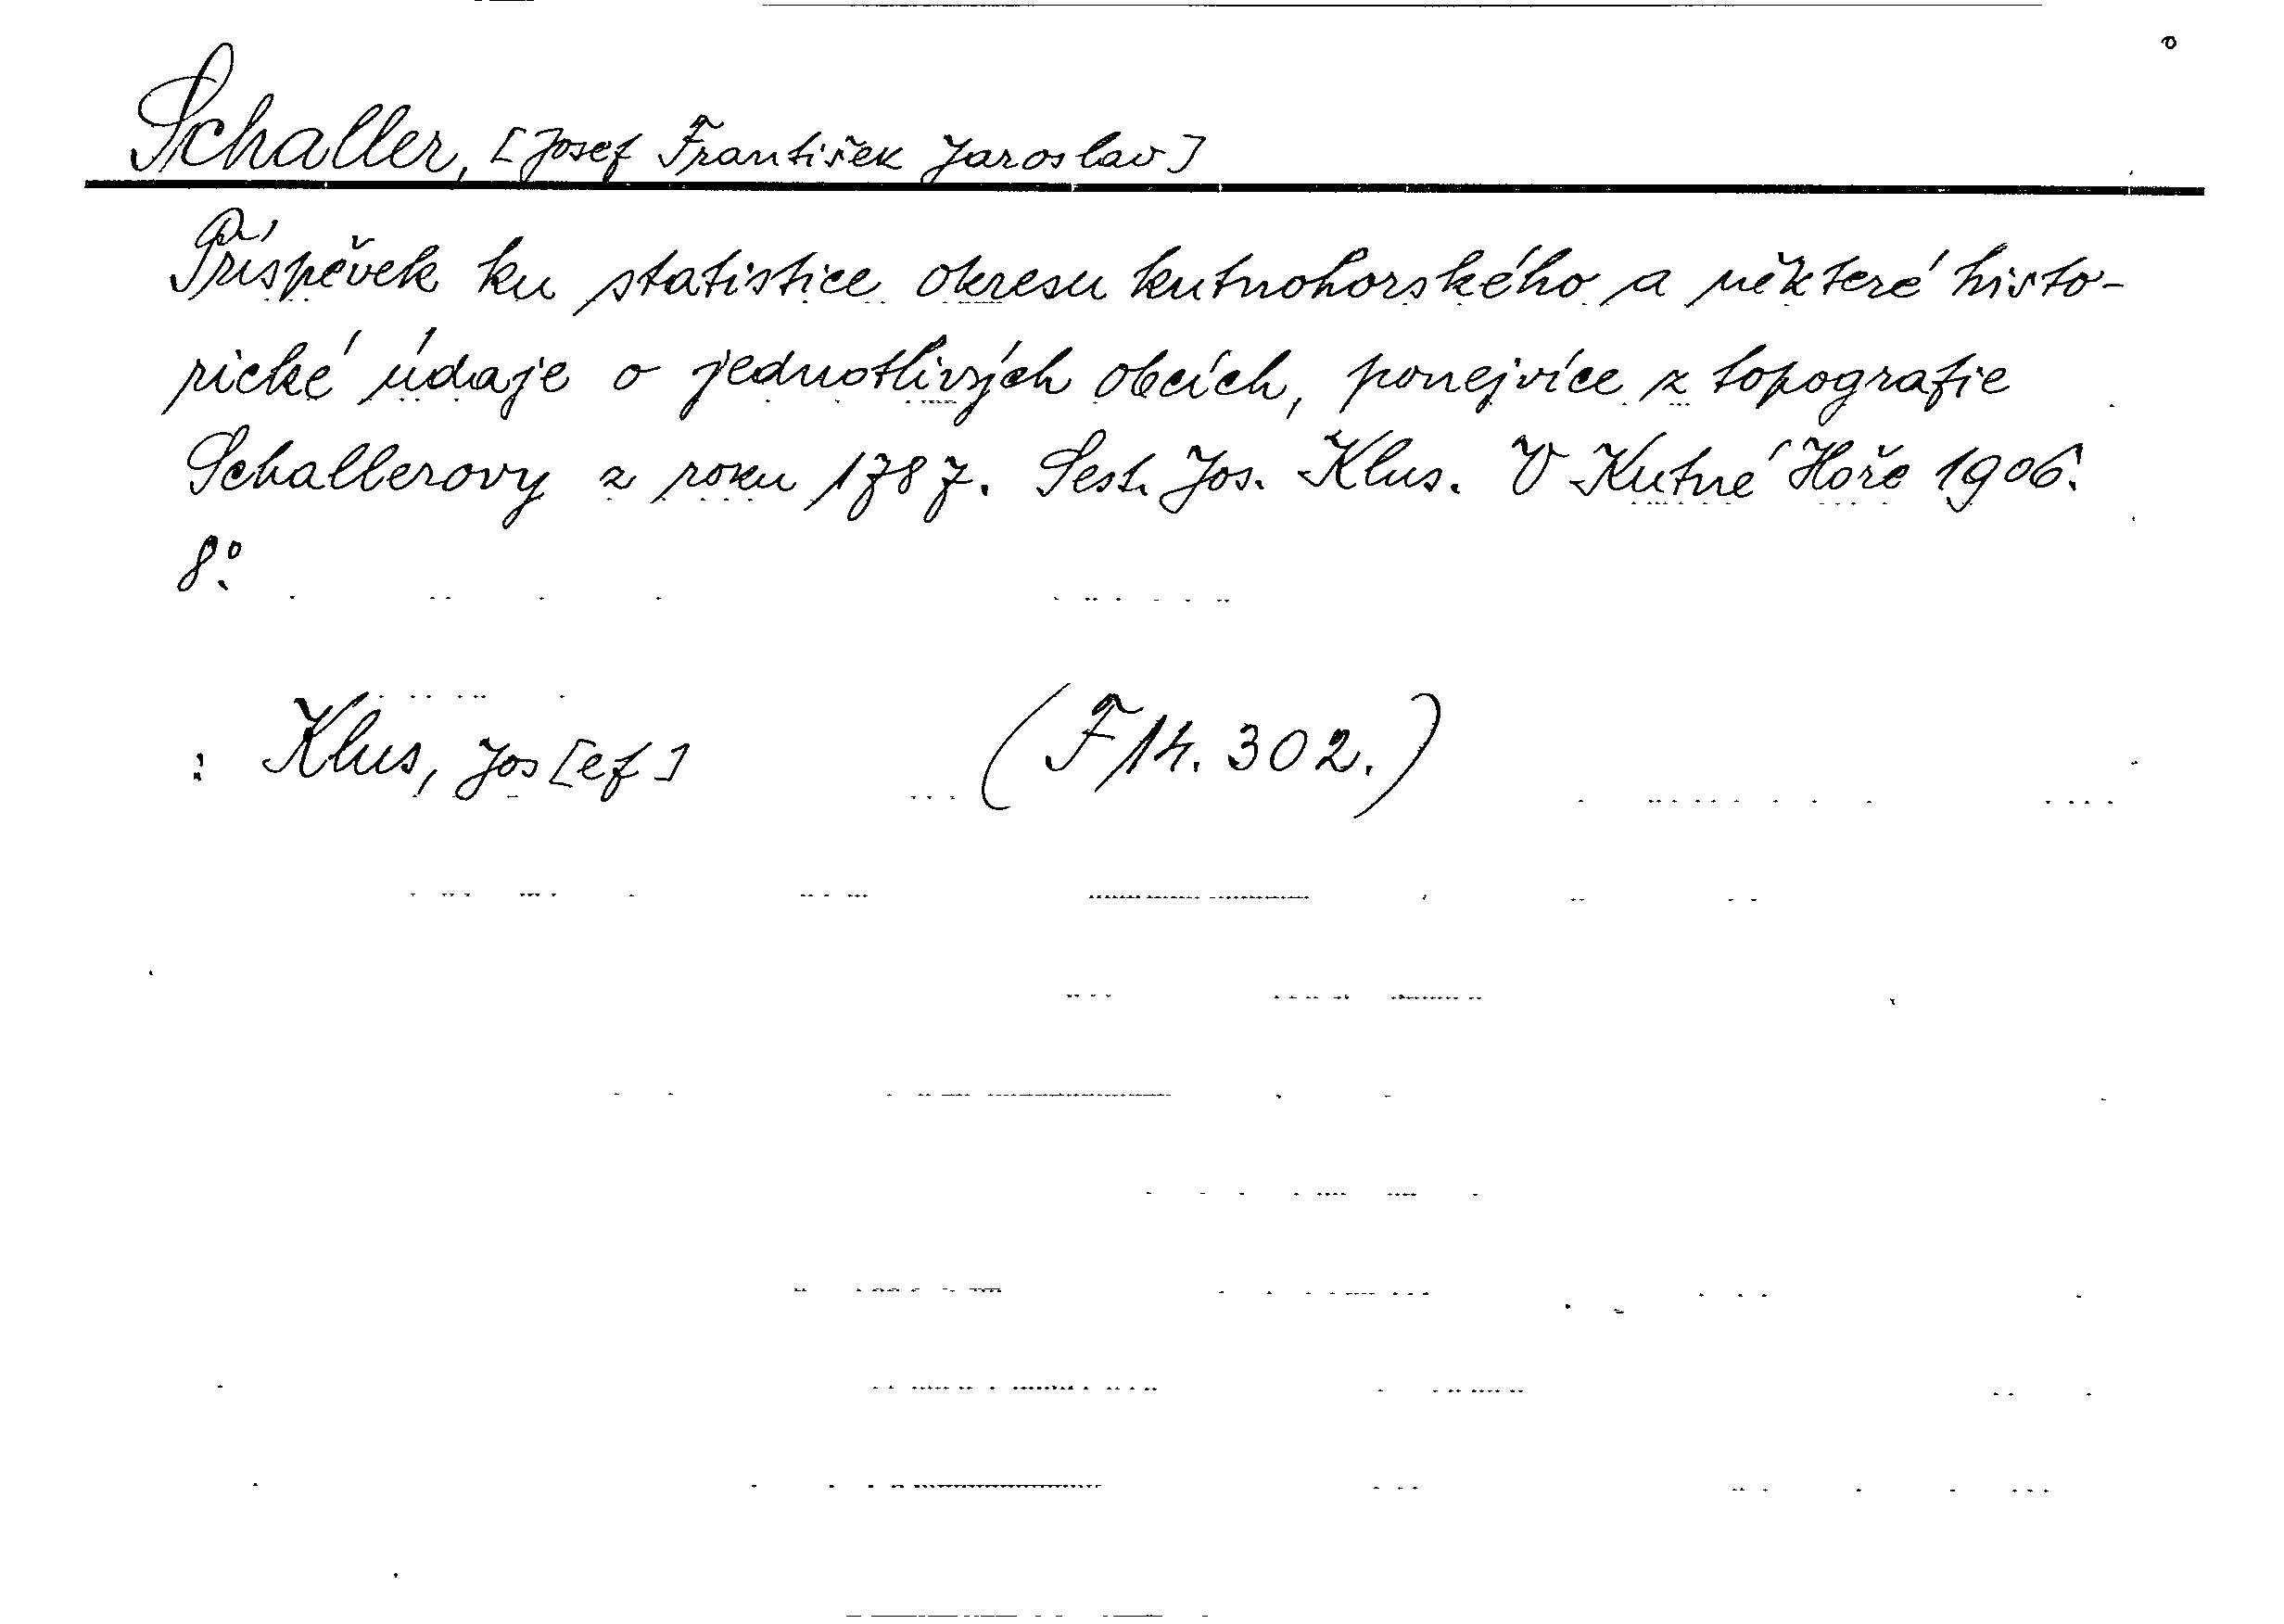 Schaller, [Josef František Jaroslav]
Příspěvek ku statistice okresu kutnohorského a některé histo-
rické údaje o jednotlivých obcích, ponejvíce z topografie
Schallerovy z roku 1787. Sest. Jos. Klus. V Kutné Hoře 1906.
8°.
: Klus, Jos[ef] (F 14.302.)